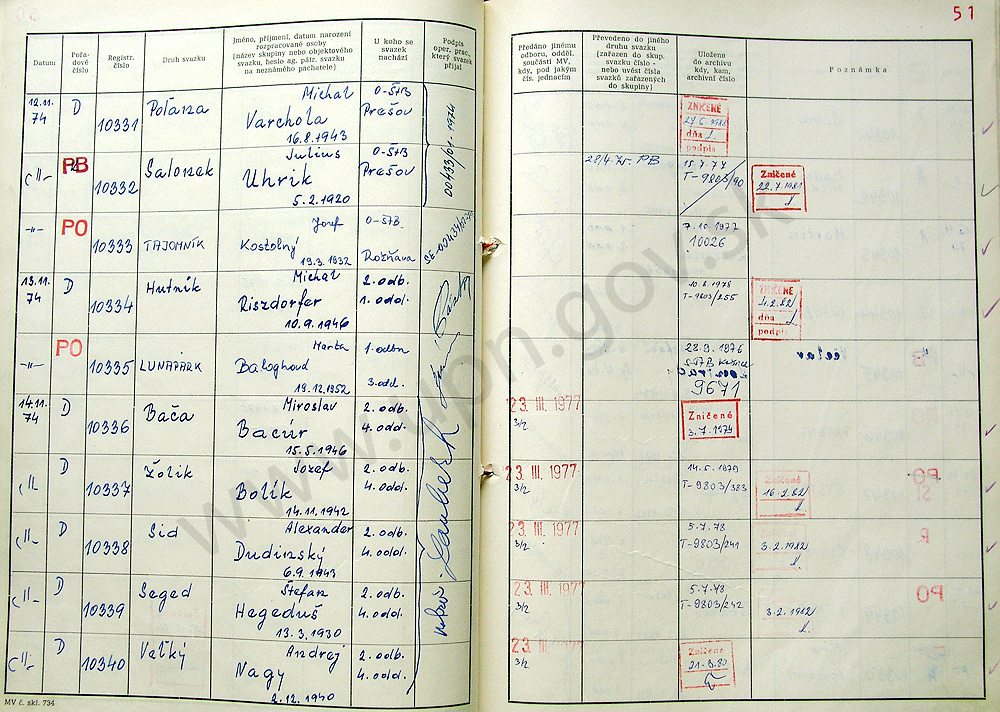 51
Datum
Pořadové číslo
Registr. číslo
Druh svazku
Jméno, příjmení, datum narození
rozpracované osoby
(název skupiny nebo objektového
svazku, heslo ag. pátr. svazku
na neznámého pachatele)
U koho se
svazek
nachází
Podpis
oper. prac.,
který svazek
přijal
Předáno jinému
odboru, odděl.
součásti MV,
kdy, pod jakým
čís. jednacím
Převedeno do jiného
druhu svazku
(zařazen do skup.
svazku číslo -
nebo uvést čísla
svazků zařazených
do skupiny)
Uloženo
do archivu
kdy, kam,
archivní číslo
Poznámka
12.11. 74 D 10331 Poľana Michal Varchola 16.8.1943 O-ŠtB Prešov
ZNIČENÉ
dňa
podpis
-"- PB 10332 Salonek Julius Uhrik 5.2.1920 O-ŠtB Prešov
00433/61-1974
28/4-75 PB
15.7.77
T-9803/90
Zničené
22.7.1981
-"- PO 10333 TAJOMNÍK Jozef Kostolný 19.3.1932 O-ŠtB Rožňava
7.10.1977
10026
13.11. 74 D 10334 Hutník Michal Riszdorfer 10.9.1946 2.odb. 1.odd.
10.8.1978
T-9803/255
ZNIČENÉ
dňa
podpis
-"- PO 10335 LUNAPARK Marta Baloghová 19.12.1952 1.odbn 3.odd.
23.9.1976
9671
14.11. 74 D 10336 Bača Miroslav Bacúr 15.5.1946 2.odb. 4.odd.
23. III. 1977
3/2
Zničené
3.7.1979
-"- D 10337 Žolik Jozef Bolík 14.11.1942 2.odb. 4.odd.
23. III. 1977
3/2
14.5.1979
T-9803/383
Zničené
16.2.82
-"- D 10338 Sid Alexander Dudinský 6.9.1943 2.odb. 4.odd.
23. III. 1977
3/2
5.7.78
T-9803/241
3.2.1982
-"- D 10339 Seged Štefan Hegeduš 13.3.1930 2.odb. 4.odd.
23. III. 1977
3/2
5.7.78
T-9803/242
3.2.1982
-"- D 10340 Veľký Andrej Nagy 2.12.1940 2.odb. 4.odd.
23. III. 1977
3/2
Zničené
21.3.80
MV č. skl. 734
www.upn.gov.sk